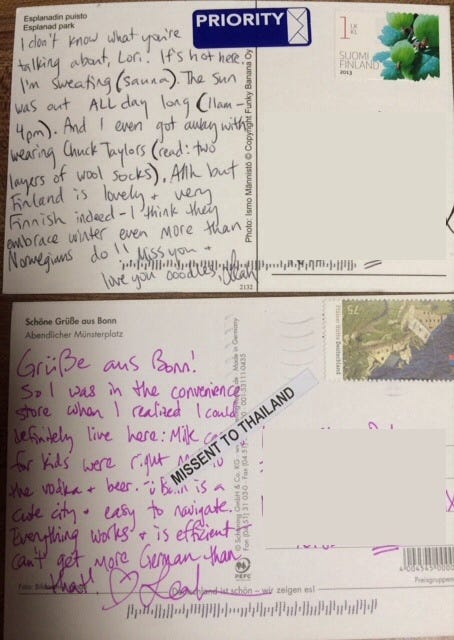 Esplanadin puisto
Esplanad park
PRIORITY
1 LK
KL
SUOMI
FINLAND
2013
I don't know what you're
talking about, Lori. It's hot here.
I'm sweating (sauna). The sun
was out ALL day long (11am-
4pm). And I even got away with
wearing Chuck Taylors (read: two
layers of wool socks). Ahh but
Finland is lovely + very
Finnish indeed - I think they
embrace winter even more than
Norwegians do!! Miss you +
love you oodles, Leah
Photo: Ismo Männistö © Copyright Funky Banana Oy
2132
Schöne Grüße aus Bonn
Abendlicher Münsterplatz
75
Deutschland
Grüße aus Bonn!
So I was in the convenience
store when I realized I could
definitely live here: Milk
for kids were right
the vodka + beer. Bonn is a
cute city + easy to navigate.
Everything works + is efficient
can't get more German than
that! ♡ Leah
MISSENT TO THAILAND
Made in Germany
PEFC
Foto:
Deutschland ist schön – wir zeigen es!
Preisgruppe